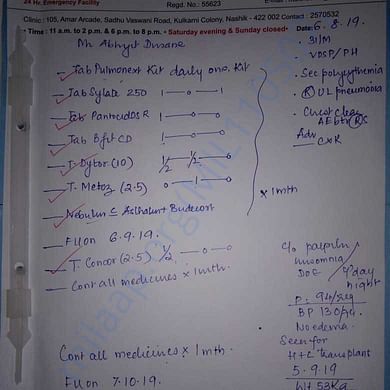 24 Hr. Emergency Facility
Regd. No.: 55623
Clinic : 105, Amar Arcade, Sadhu Vaswani Road, Kulkarni Colony, Nashik - 422 002 Contact : 2570532
• Time : 11 a.m. to 2 p.m. & 6 p.m. to 8 p.m. • Saturday evening & Sunday closed •
Date: 6.8.19.
Mr. Abhijit
Tab Pulmonext Kit daily one Kit
Tab 250 1—0—1
Tab DSR 1—0—0
Tab Bfit CD 0—1—0
T. Dytor (10) 1/2 1/2 0
T. Metoz (2.5) 0—1—0
Nebulise c + Budecort
x 1mth
FU on 6.9.19.
T. Concor (2.5) 1/2—0—0
Cont all medicines x 1mth.
Cont all medicines x 1mth.
FU on 7.10.19.
31/M
VDSP/PH
Sec polycythemia
(R) UL pneumonia
Chest clear
AE (R)S
Adv
CXR
c/o palpitn
insomnia
DOE
night
P. 94/reg
BP 130/
No edema.
Seen for
H+L transplant
5.9.19
Wt 53Kg